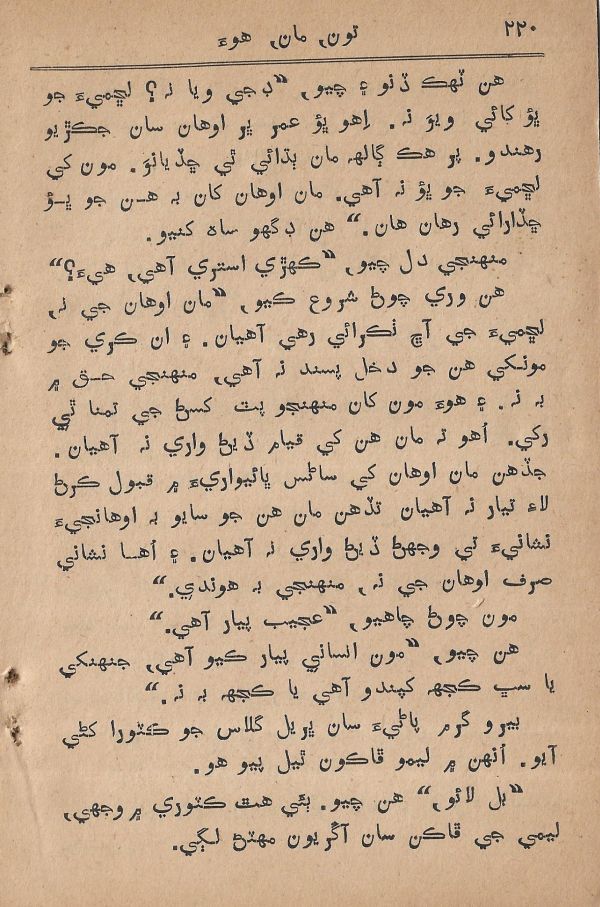 ٢٢٠ تون, مان, هوءَ
هن ٽهڪ ڏنو ۽ چيو, ”ڊڄي ويا نہ؟ لڇميءَ جو
ڀؤ کائي ويوَ نہ. اِهو ڀؤ عمر ڀر اوهان سان جڪڙيو
رهندو. پر هڪ ڳالهہ مان ٻڌائي ٿي ڇڏيانوَ. مون کي
لڇميءَ جو ڀؤ نہ آهي. مان اوهان کان بہ هن جو ڀؤ
ڇڏارائي رهان هان.“ هن ڊگهو ساه کنيو.
منهنجي دل چيو, ”ڪهڙي استري آهي, هيءَ؟“
هن وري چوڻ شروع ڪيو, ”مان اوهان جي نہ,
لڇميءَ جي آڇ ٺڪرائي رهي آهيان. ۽ ان ڪري جو
مونکي هن جو دخل پسند نہ آهي, منهنجي حق ۾
بہ نہ. ۽ هوءَ مون کان منهنجو پٽ کسڻ جي تمنا ٿي
رکي. اُهو تہ مان هن کي قيام ڏيڻ واري نہ آهيان.
جڏهن مان اوهان کي ساڻس ڀائيواريءَ ۾ قبول ڪرڻ
لاءِ تيار نہ آهيان تڏهن مان هن جو سايو بہ اوهانجيءَ
نشانيءَ تي وجهڻ ڏيڻ واري نہ آهيان. ۽ اُها نشاني
صرف اوهان جي نہ, منهنجي بہ هوندي.“
مون چوڻ چاهيو, ”عجيب پيار آهي.“
هن چيو, ”مون انساني پيار ڪيو آهي, جنهنکي
يا سڀ ڪجهہ کپندو آهي يا ڪجهہ بہ نہ.“
بيرو گرم پاڻيءَ سان ڀريل گلاس جو ڪٽورا کڻي
آيو. اُنهن ۾ ليمو ڦاڪون ٿيل پيو هو.
”بل لائو,“ هن چيو. ٻئي هٿ ڪٽوري ۾ وجهي,
ليمي جي ڦاڪن سان آڱريون مهٽڻ لڳي.